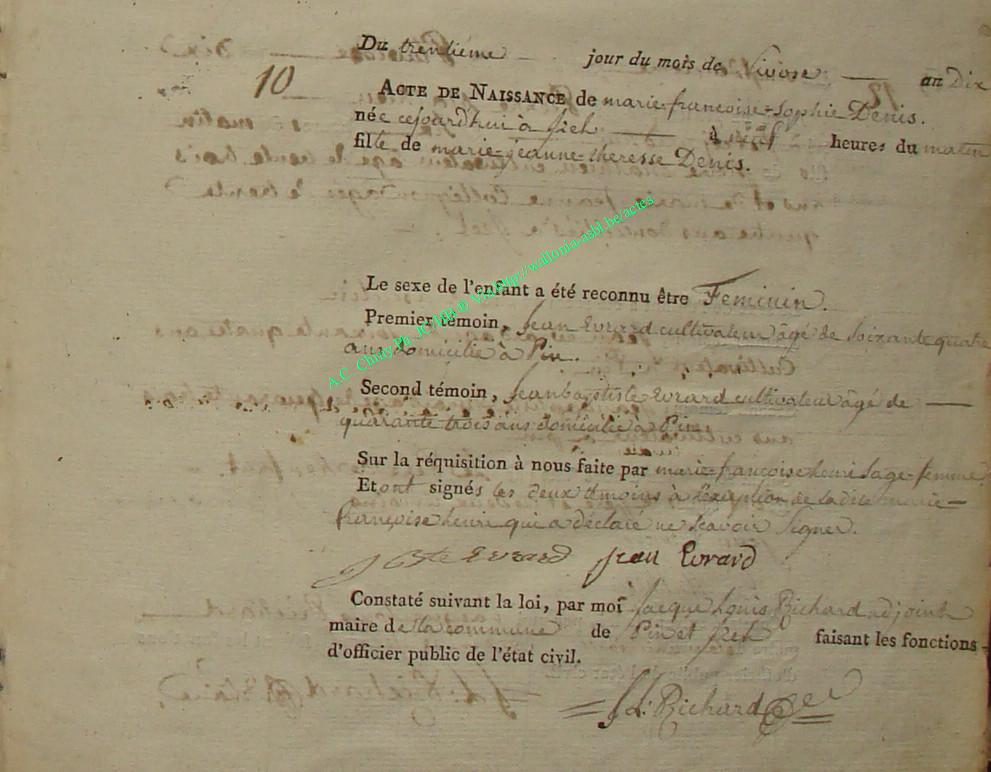 Du trentieme jour du mois de Nivose an Dix
10
ACTE DE NAISSANCE de marie-francoise-sophie Denis.
née cejourdhui à à heures du matin
fille de marie-jeanne-theresse Denis.
Le sexe de l'enfant a été reconnu être Feminin.
Premier témoin, Jean Evrard cultivateur agé de soixante quatre
ans domicilié à Pin.
Second témoin, jean baptiste Evrard cultivateur agé de
quarante trois ans domicilié à Pin
Sur la réquisition à nous faite par marie-françoise henri sage-femme
Et ont signés les deux témoins à l'exeption de ladite marie
françoise henri qui a déclaré ne scavoir signer.
jBte Evrard jean Evrard
Constaté suivant la loi, par moi Jacque Louis Richard adjoint
maire de la commune de Pin et faisant les fonctions
d'officier public de l'état civil.
J L: Richard
A.C. Chiny Ph. JC hjb © Via http://wallonia-asbl.be/actes